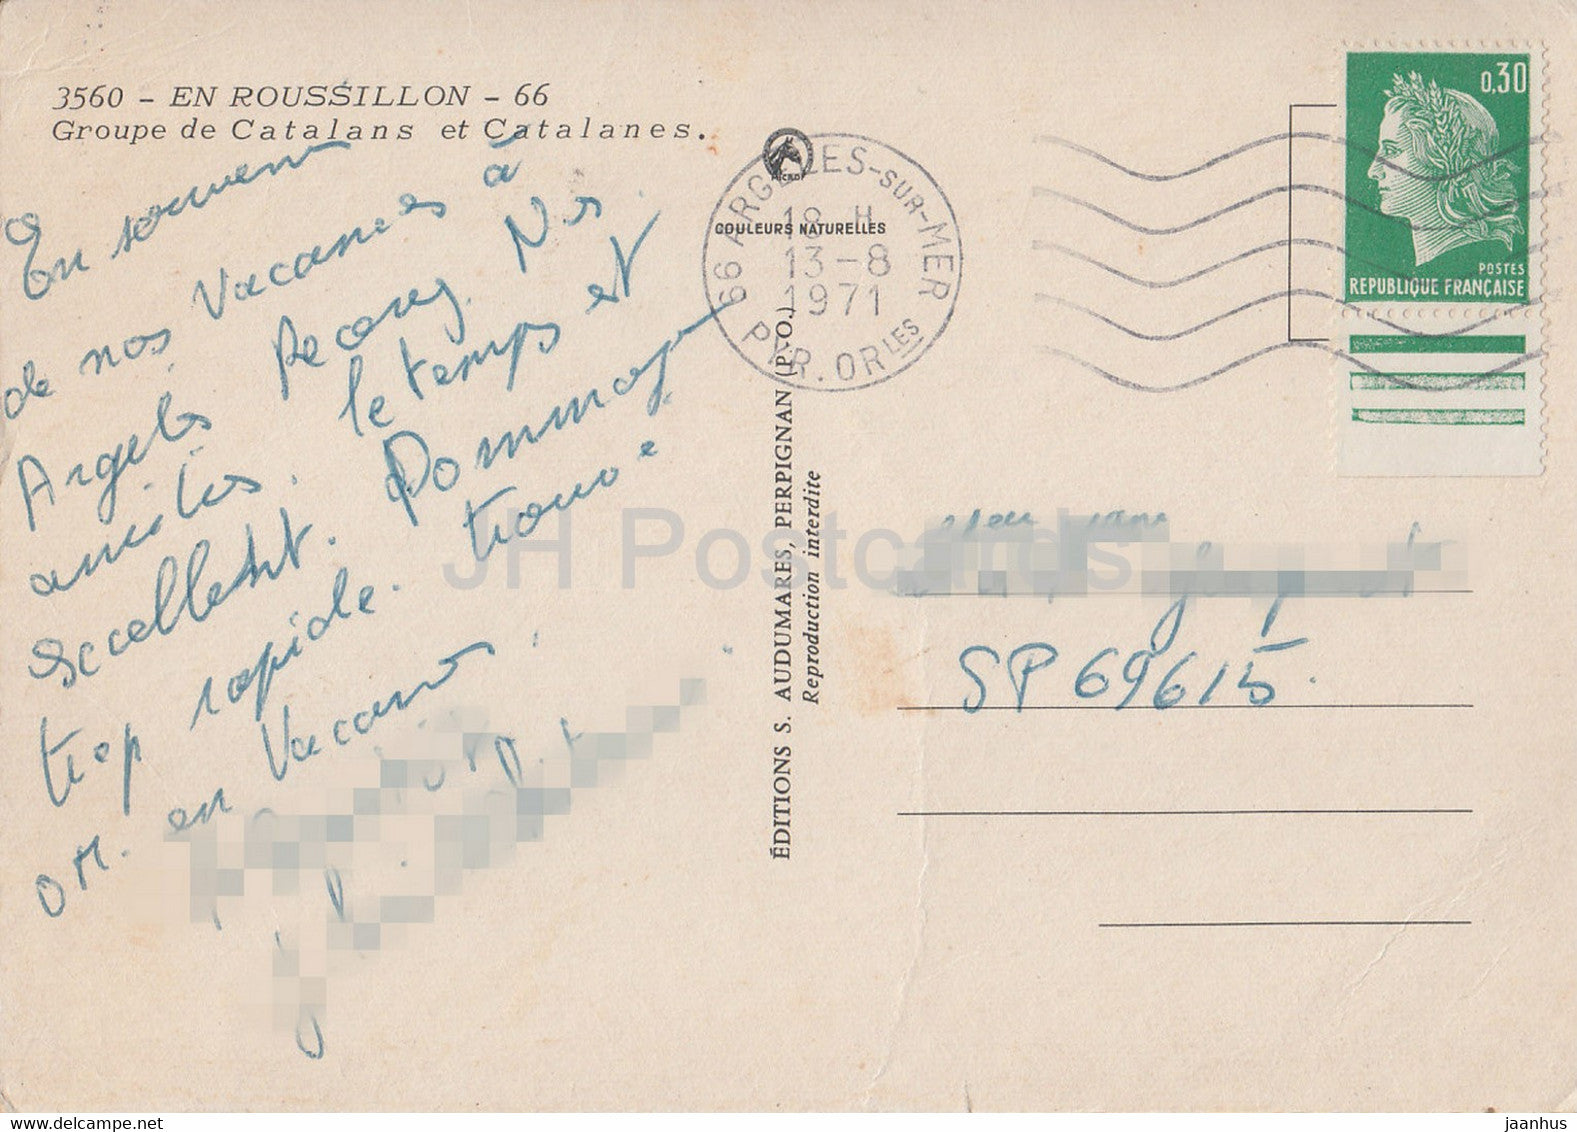 3560 - EN ROUSSILLON - 66
Groupe de Catalans et Catalanes.
En souvenir
de nos vacances à
Argelès. Recevez Nos
amitiés. le temps est
Excellent. Dommage
trop rapide. trouve
on en vacances.
66 ARGELES-SUR-MER
18 H
13-8
1971
PYR. ORLES
COULEURS NATURELLES
ÉDITIONS S. AUDUMARES, PERPIGNAN (P.-O.)
Reproduction interdite
0,30
POSTES
REPUBLIQUE FRANÇAISE
SP 69615.
JH Postcards
delcampe.net
jaanhus